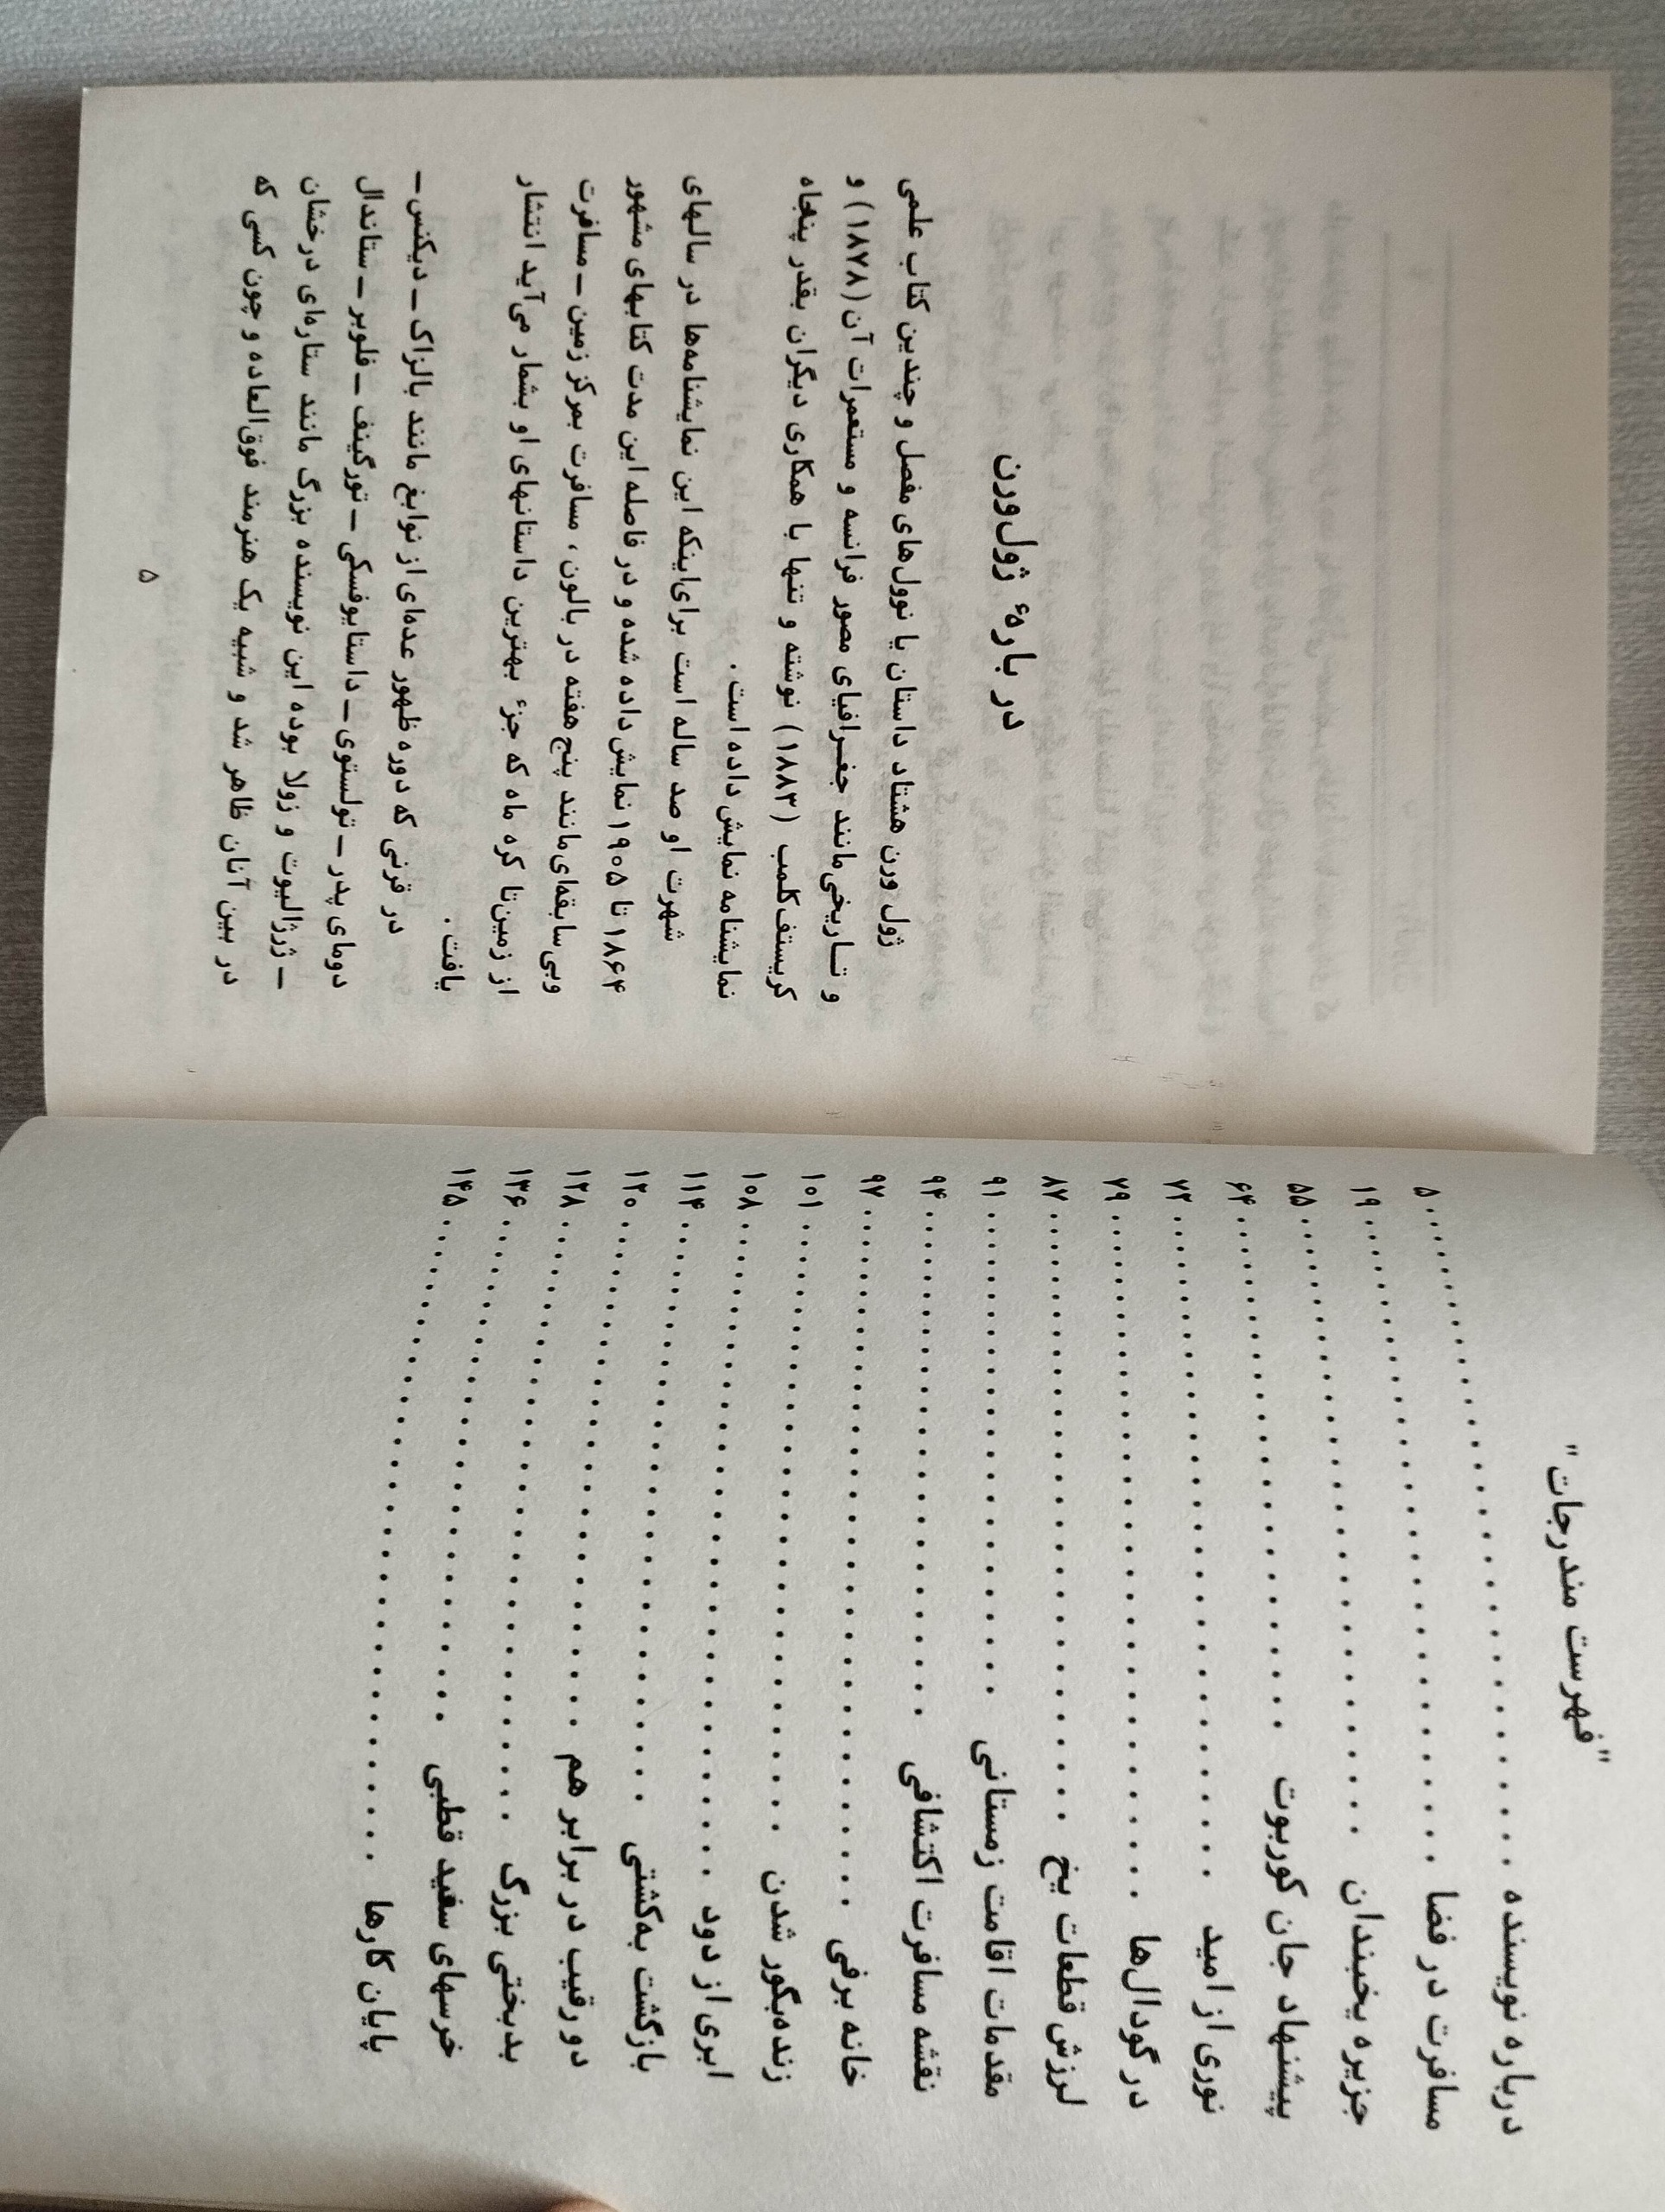 "فهرست مندرجات"
درباره نویسنده . . . . . . . . . . . . . . . . . . . . ۵
مسافرت در فضا . . . . . . . . . . . . . . . . . . . . ۱۹
جزیره یخبندان . . . . . . . . . . . . . . . . . . . . ۵۵
پیشنهاد جان کوربوت . . . . . . . . . . . . . . . . . . . . ۶۴
نوری از امید . . . . . . . . . . . . . . . . . . . . ۷۲
در گودال‌ها . . . . . . . . . . . . . . . . . . . . ۷۹
لرزش قطعات یخ . . . . . . . . . . . . . . . . . . . . ۸۷
مقدمات اقامت زمستانی . . . . . . . . . . . . . . . . . . . . ۹۱
نقشه مسافرت اکتشافی . . . . . . . . . . . . . . . . . . . . ۹۴
خانه برفی . . . . . . . . . . . . . . . . . . . . ۹۷
زنده‌بگور شدن . . . . . . . . . . . . . . . . . . . . ۱۰۱
ابری از دود . . . . . . . . . . . . . . . . . . . . ۱۰۸
بازگشت به‌کشتی . . . . . . . . . . . . . . . . . . . . ۱۱۴
دو رقیب در برابر هم . . . . . . . . . . . . . . . . . . . . ۱۲۰
بدبختی بزرگ . . . . . . . . . . . . . . . . . . . . ۱۲۸
خرسهای سفید قطبی . . . . . . . . . . . . . . . . . . . . ۱۳۶
پایان کارها . . . . . . . . . . . . . . . . . . . . ۱۴۵
در بارهٔ ژول‌ورن
ژول ورن هشتاد داستان یا نوول‌های مفصل و چندین کتاب علمی
و تـاریخی‌مانند جغـرافیای مصور فرانسه و مستعمرات آن (۱۸۷۸) و
کریستف‌کلمب (۱۸۸۳) نوشته و تنها با همکاری دیگران بقدر پنجاه
نمایشنامه نمایش داده است .
شهرت او صد ساله است برای‌اینکه این نمایشنامه‌ها در سالهای
۱۸۶۴ تا ۱۹۰۵ نمایش داده شده و در فاصله این مدت کتابهای مشهور
وبی‌سابقه‌ای‌مانند پنج هفته در بالون ، مسافرت بمرکز زمین ـ مسافرت
از زمین‌تا کره ماه که جزءٔ بهترین داستانهای او بشمار می‌آید انتشار
یافت .
در قرنی که دوره ظهور عده‌ای از نوابغ مانند بالزاک ـ دیکنس ـ
دومای پدر ـ تولستوی ـ داستایوفسکی ـ تورگینف ـ فلوبر ـ ستاندال
ـ ژرژالیوت و زولا بوده این نویسنده بزرگ مانند ستاره‌ای درخشان
در بین آنان ظاهر شد و شبیه یک هنرمند فوق‌العاده و چون کسی که
۵